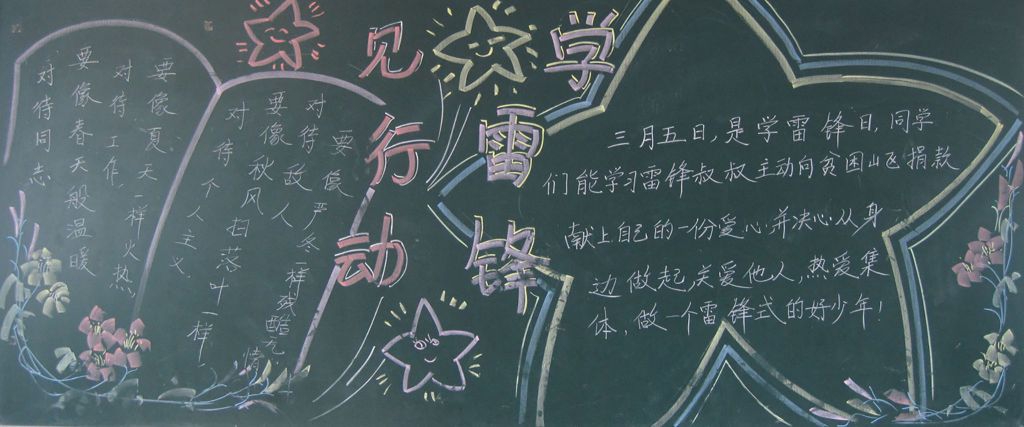 学雷锋
见行动
对待同志,
要像春天般温暖
对待工作,
要像夏天一样火热
对待个人主义
要像秋风扫落叶一样
对待政人
要像严冬一样残酷无情
三月五日,是学雷锋日,同学
们能学习雷锋叔叔主动向贫困山区捐款
献上自己的一份爱心.并决心从身
边做起,关爱他人,热爱集
体,做一个雷锋式的好少年!